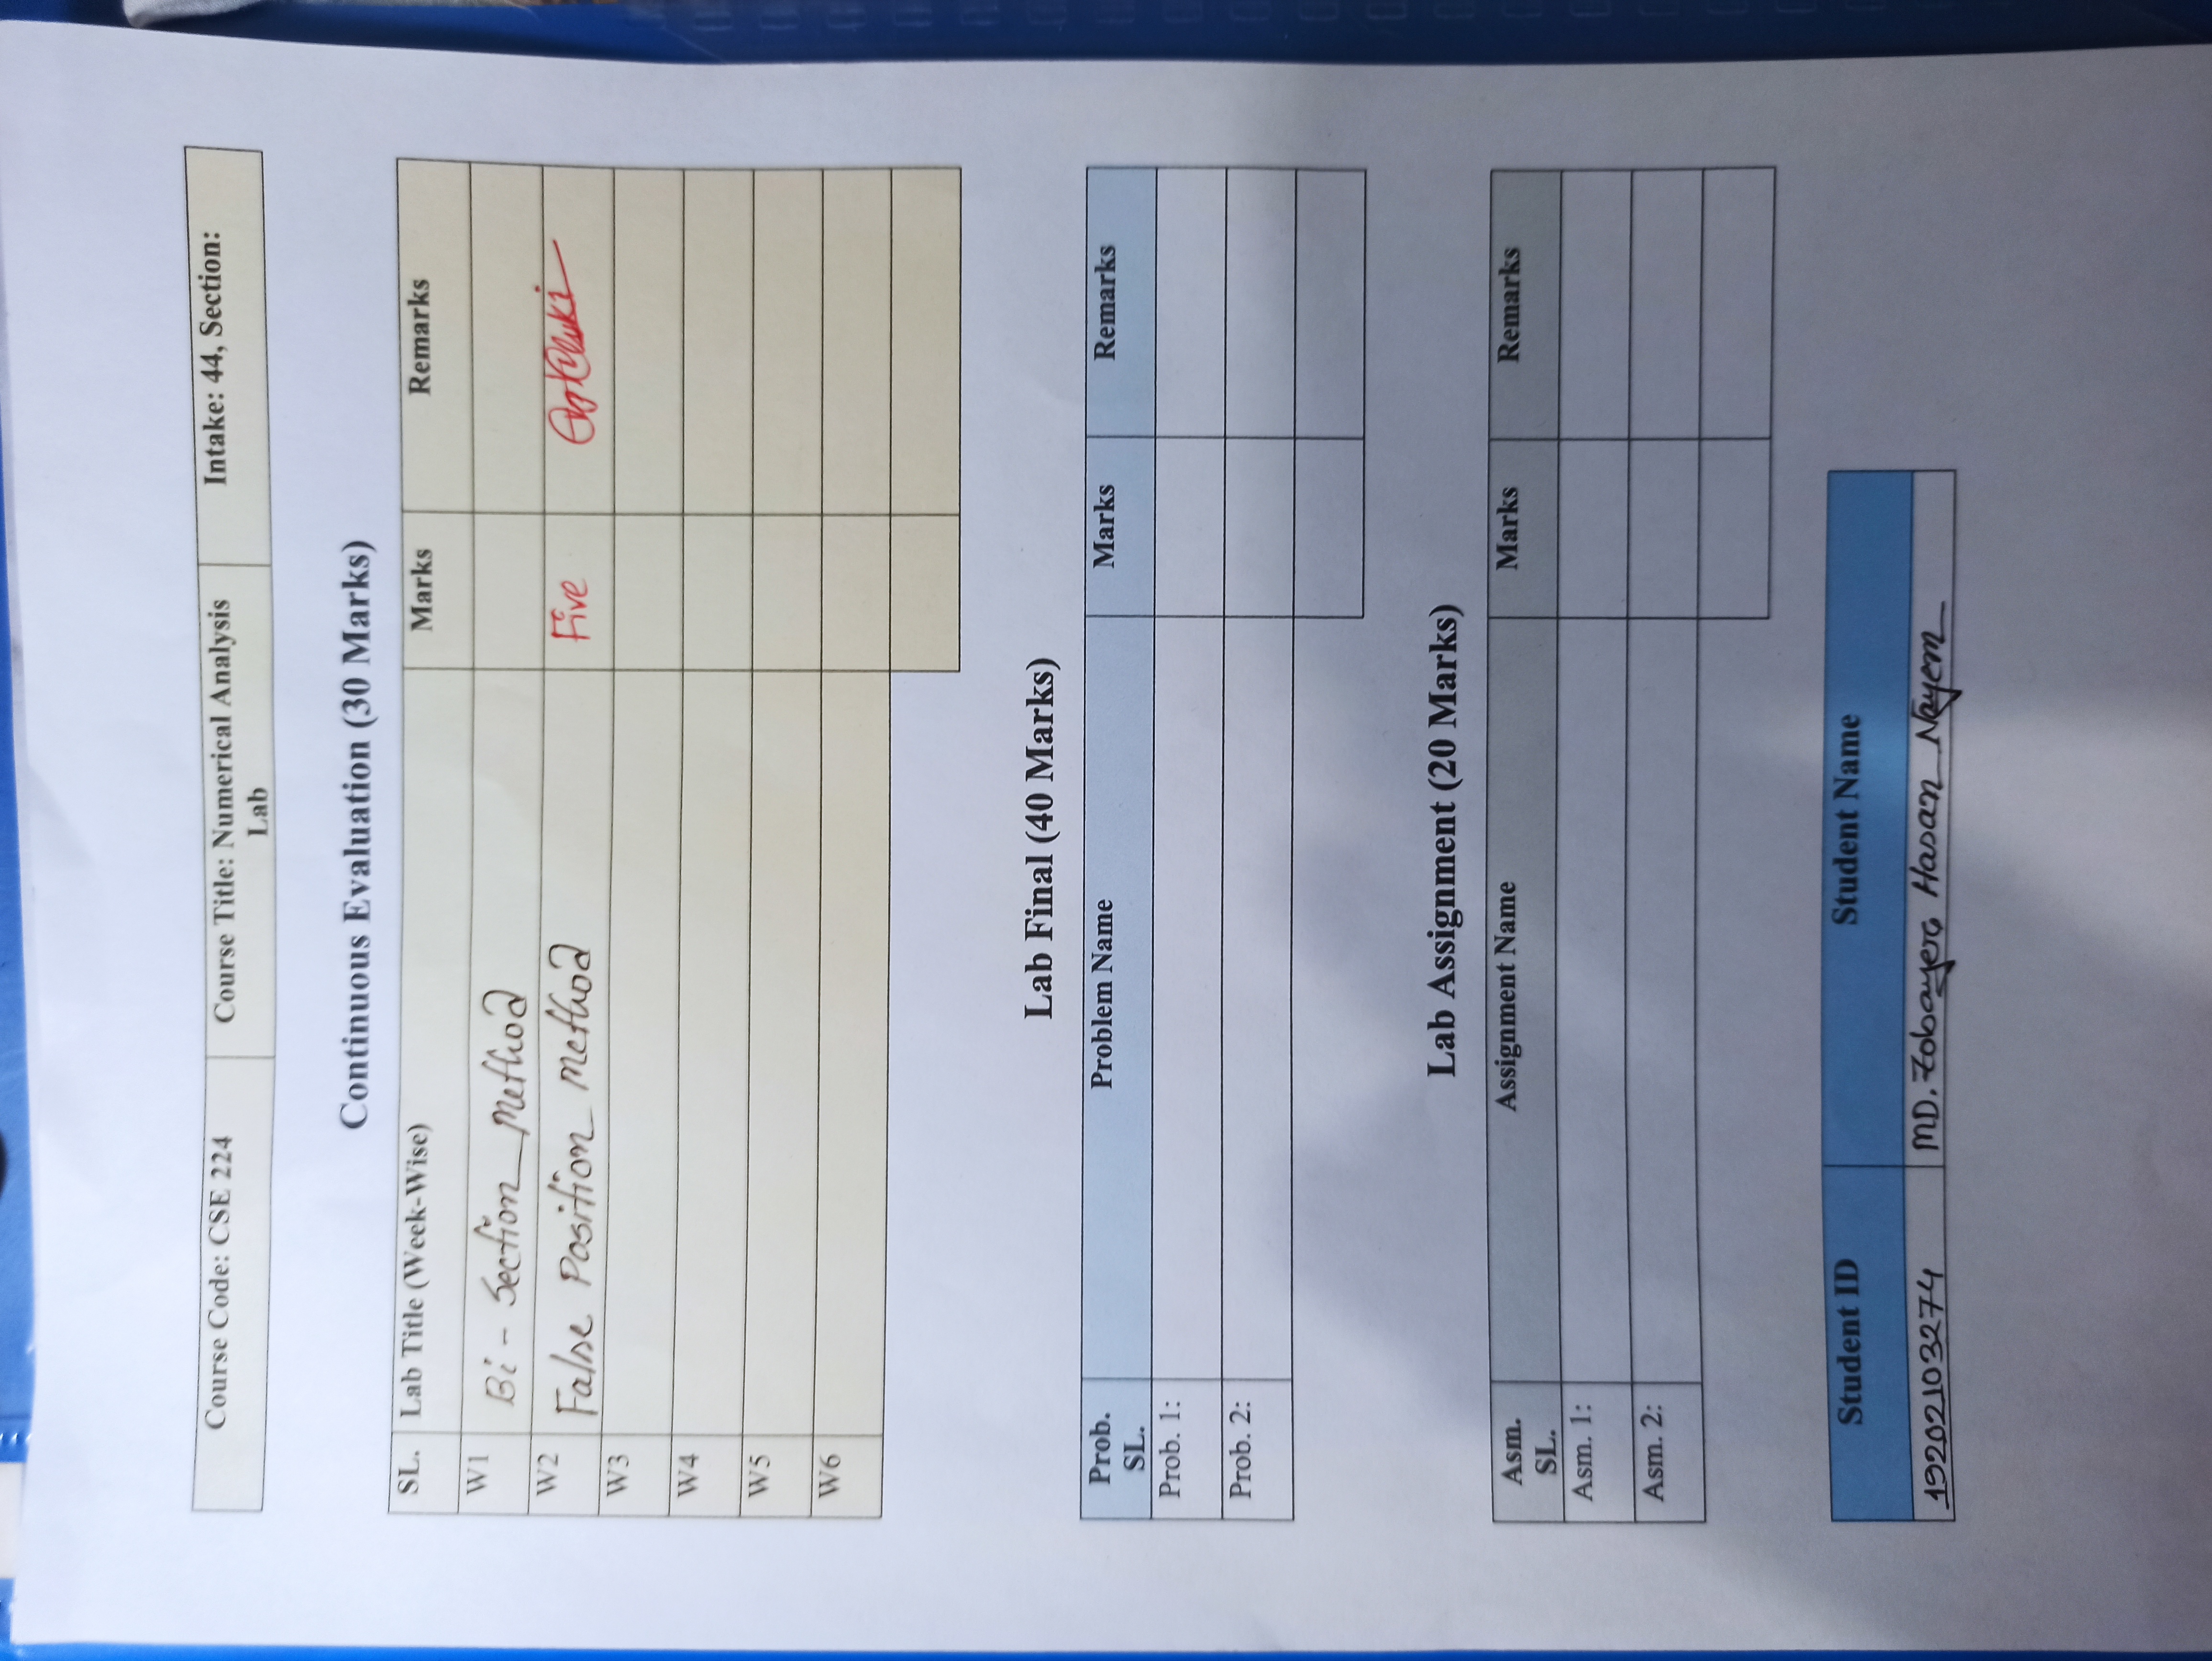 Course Code: CSE 224
Course Title: Numerical Analysis
Lab
Intake: 44, Section:
Continuous Evaluation (30 Marks)
SL. Lab Title (Week-Wise) Marks Remarks
W1 Bi - Section Method
W2 False Position Method Five
W3
W4
W5
W6
Lab Final (40 Marks)
Prob.
SL.
Problem Name Marks Remarks
Prob. 1:
Prob. 2:
Lab Assignment (20 Marks)
Asm.
SL.
Assignment Name Marks Remarks
Asm. 1:
Asm. 2:
Student ID Student Name
19202103274 MD. Zobayer Hasan Nayem